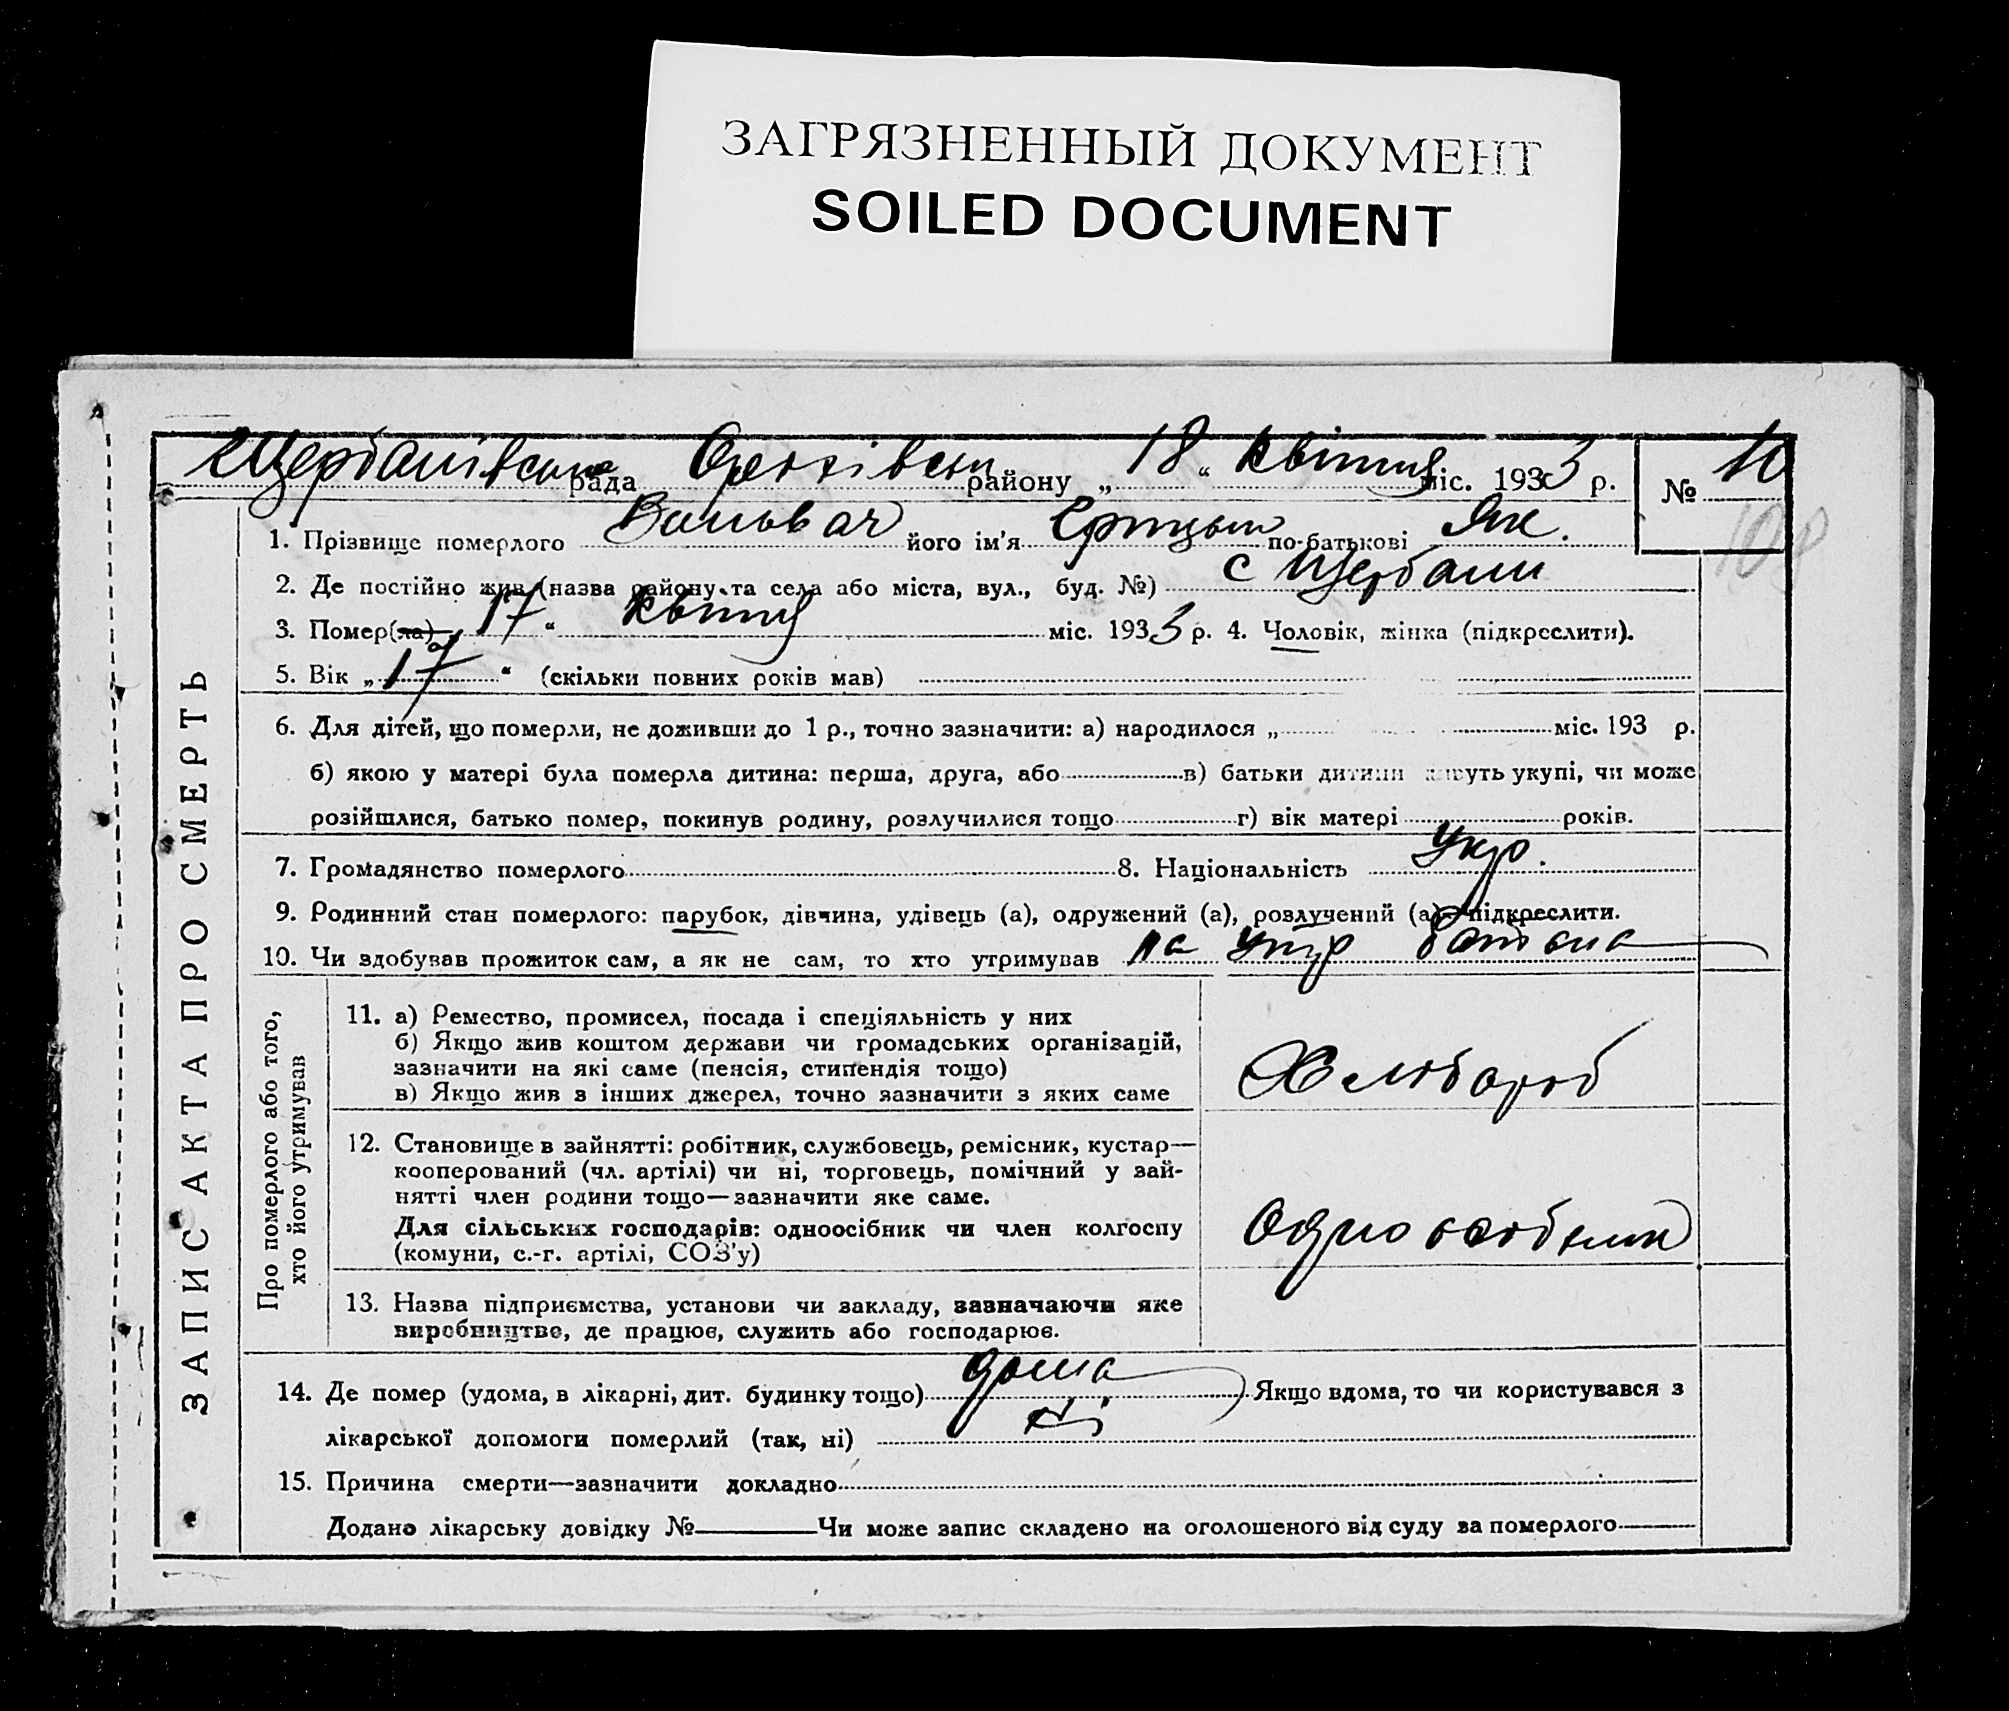 ЗАГРЯЗНЕННЫЙ ДОКУМЕНТ
SOILED DOCUMENT
рада району „ 18 “ квітня міс. 1933 р. № 10
108
ЗАПИС АКТА ПРО СМЕРТЬ
1. Прізвище померлого його ім'я по-батькові Як.
2. Де постійно жив (назва району та села або міста, вул., буд. №) с Щербани
3. Помер(ла) „ 17 “ квітня міс. 1933 р. 4. Чоловік, жінка (підкреслити).
5. Вік „ 17 “ (скільки повних років мав)
6. Для дітей, що померли, не доживши до 1 р., точно зазначити: а) народилося „ міс. 193 р.
б) якою у матері була померла дитина: перша, друга, або в) батьки дитини живуть укупі, чи може
розійшлися, батько помер, покинув родину, розлучилися тощо г) вік матері років.
7. Громадянство померлого 8. Національність Укр.
9. Родинний стан померлого: парубок, дівчина, удівець (а), одружений (а), розлучений (а)—підкреслити.
10. Чи здобував прожиток сам, а як не сам, то хто утримував на утр батька
Про померлого або того,
хто його утримував
11. а) Ремество, промисел, посада і спеціяльність у них
б) Якщо жив коштом держави чи громадських організацій,
зазначити на які саме (пенсія, стипендія тощо)
в) Якщо жив з інших джерел, точно зазначити з яких саме
Хлібороб
12. Становище в зайнятті: робітник, службовець, ремісник, кустар—
кооперований (чл. артілі) чи ні, торговець, помічний у зай-
нятті член родини тощо—зазначити яке саме.
Для сільських господарів: одноосібник чи член колгоспу
(комуни, с.-г. артілі, СОЗ'у)
Одноосібник
13. Назва підприємства, установи чи закладу, зазначаючи яке
виробництво, де працює, служить або господарює.
14. Де помер (удома, в лікарні, дит. будинку тощо) дома Якщо вдома, то чи користувався з
лікарської допомоги померлий (так, ні) Ні
15. Причина смерти—зазначити докладно
Додано лікарську довідку № Чи може запис складено на оголошеного від суду за померлого